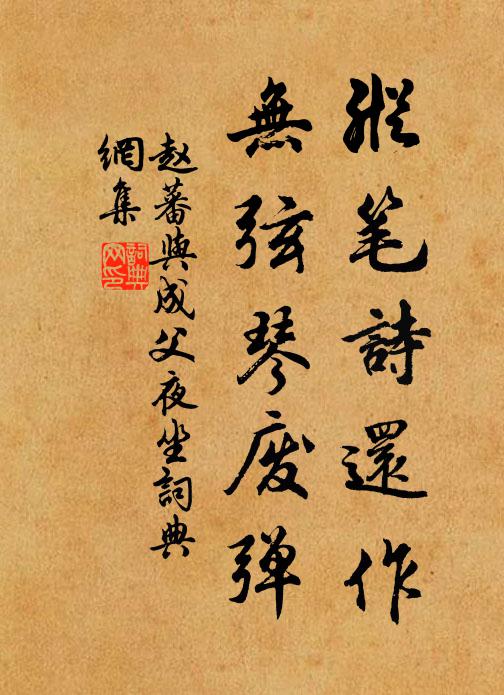 縱笔詩還作
無弦琴废弹
赵蕃與成父夜坐詞典
網集
詞典
网印